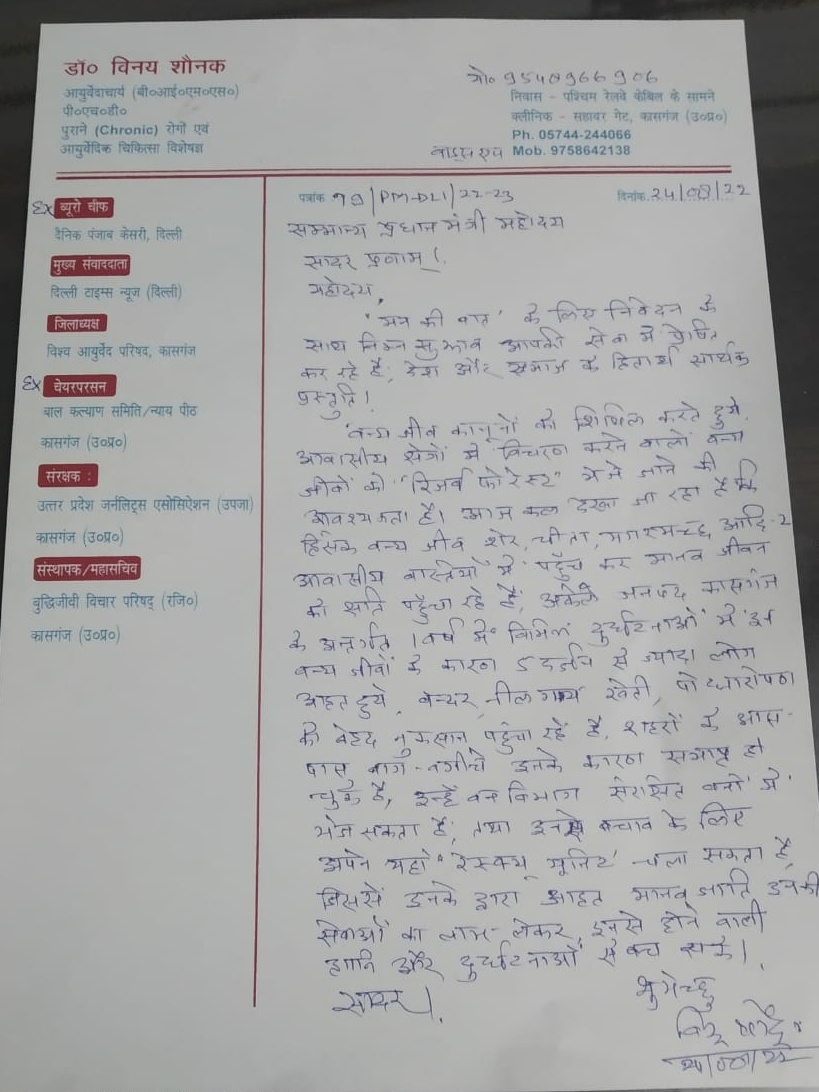 डॉ० विनय शौनक
आयुर्वेदाचार्य (बी०आई०एम०एस०)
पी०एच०डी०
पुराने (Chronic) रोगों एवं
आयुर्वेदिक चिकित्सा विशेषज्ञ
मो० 9548966906
निवास - पश्चिम रेलवे केबिल के सामने
क्लीनिक - सहावर गेट, कासगंज (उ०प्र०)
Ph. 05744-244066
वाट्सएप Mob. 9758642138
Ex ब्यूरो चीफ
दैनिक पंजाब केसरी, दिल्ली
मुख्य संवाददाता
दिल्ली टाइम्स न्यूज (दिल्ली)
जिलाध्यक्ष
विश्व आयुर्वेद परिषद, कासगंज
Ex चेयरपरसन
बाल कल्याण समिति/न्याय पीठ
कासगंज (उ०प्र०)
संरक्षक :
उत्तर प्रदेश जर्नलिट्स एसोसिऐशन (उपजा)
कासगंज (उ०प्र०)
संस्थापक/महासचिव
वुद्धिजीवी विचार परिषद् (रजि०)
कासगंज (उ०प्र०)
पत्रांक /PM-DLI/22-23 दिनांक 24/08/22
सम्मान्य प्रधान मंत्री महोदय
सादर प्रणाम।
महोदय,
'मन की बात' के लिए निवेदन के
साथ निम्न सुझाव आपकी सेवा में प्रेषित
कर रहे हैं, देश और समाज के हितार्थ सार्थक
प्रस्तुति।
"वन्य जीव कानूनों को शिथिल करते हुये
आवासीय क्षेत्रों में विचरण करने वालों वन्य
जीवों को "रिजर्व फोरेस्ट" भेजे जाने की
आवश्यकता है। आज कल देखा जा रहा है कि
हिंसक वन्य जीव शेर, चीता, मगरमच्छ आदि-2
आवासीय वास्तियों में पहुँच कर मानव जीवन
को क्षति पहुँचा रहे हैं, अकेले जनपद कासगंज
के अन्तर्गत 1 वर्ष में विभिन्न दुर्घटनाओं में इन
वन्य जीवों के कारण 5 दर्जन से ज्यादा लोग
आहत हुये, बन्दर, नील गाय खेती, पौधारोपण
को बेहद नुकसान पहुँचा रहे हैं, शहरों के आस-
पास बाग-बगीचे इनके कारण समाप्त हो
चुके हैं, इन्हें वन विभाग संरक्षित वनों में
भेज सकता है, तथा इनसे बचाव के लिए
अपने यहाँ 'रेस्क्यू यूनिट' चला सकता है,
जिससे उनके द्वारा आहत मानव जाति उनकी
सेवाओं का लाभ लेकर, इनसे होने वाली
हानि और दुर्घटनाओं से बच सके।
सादर।
शुभेच्छु